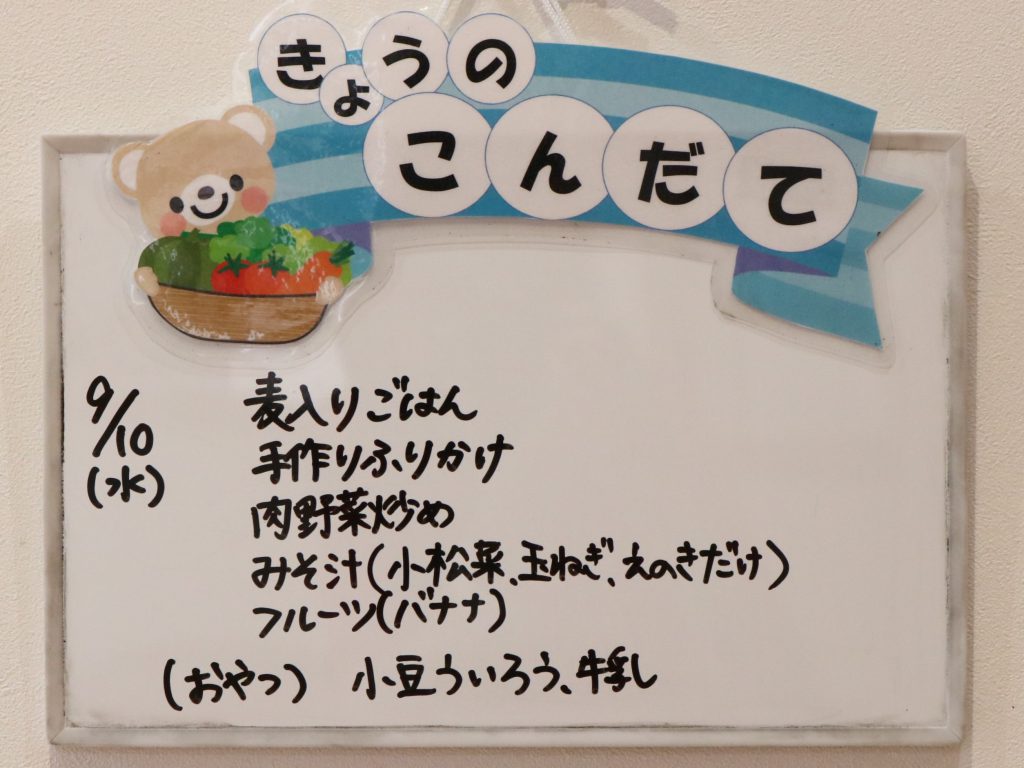 きょうの
こんだて
9/10
(水)
麦入りごはん
手作りふりかけ
肉野菜炒め
みそ汁(小松菜、玉ねぎ、えのきだけ)
フルーツ(バナナ)
(おやつ) 小豆ういろう、牛乳